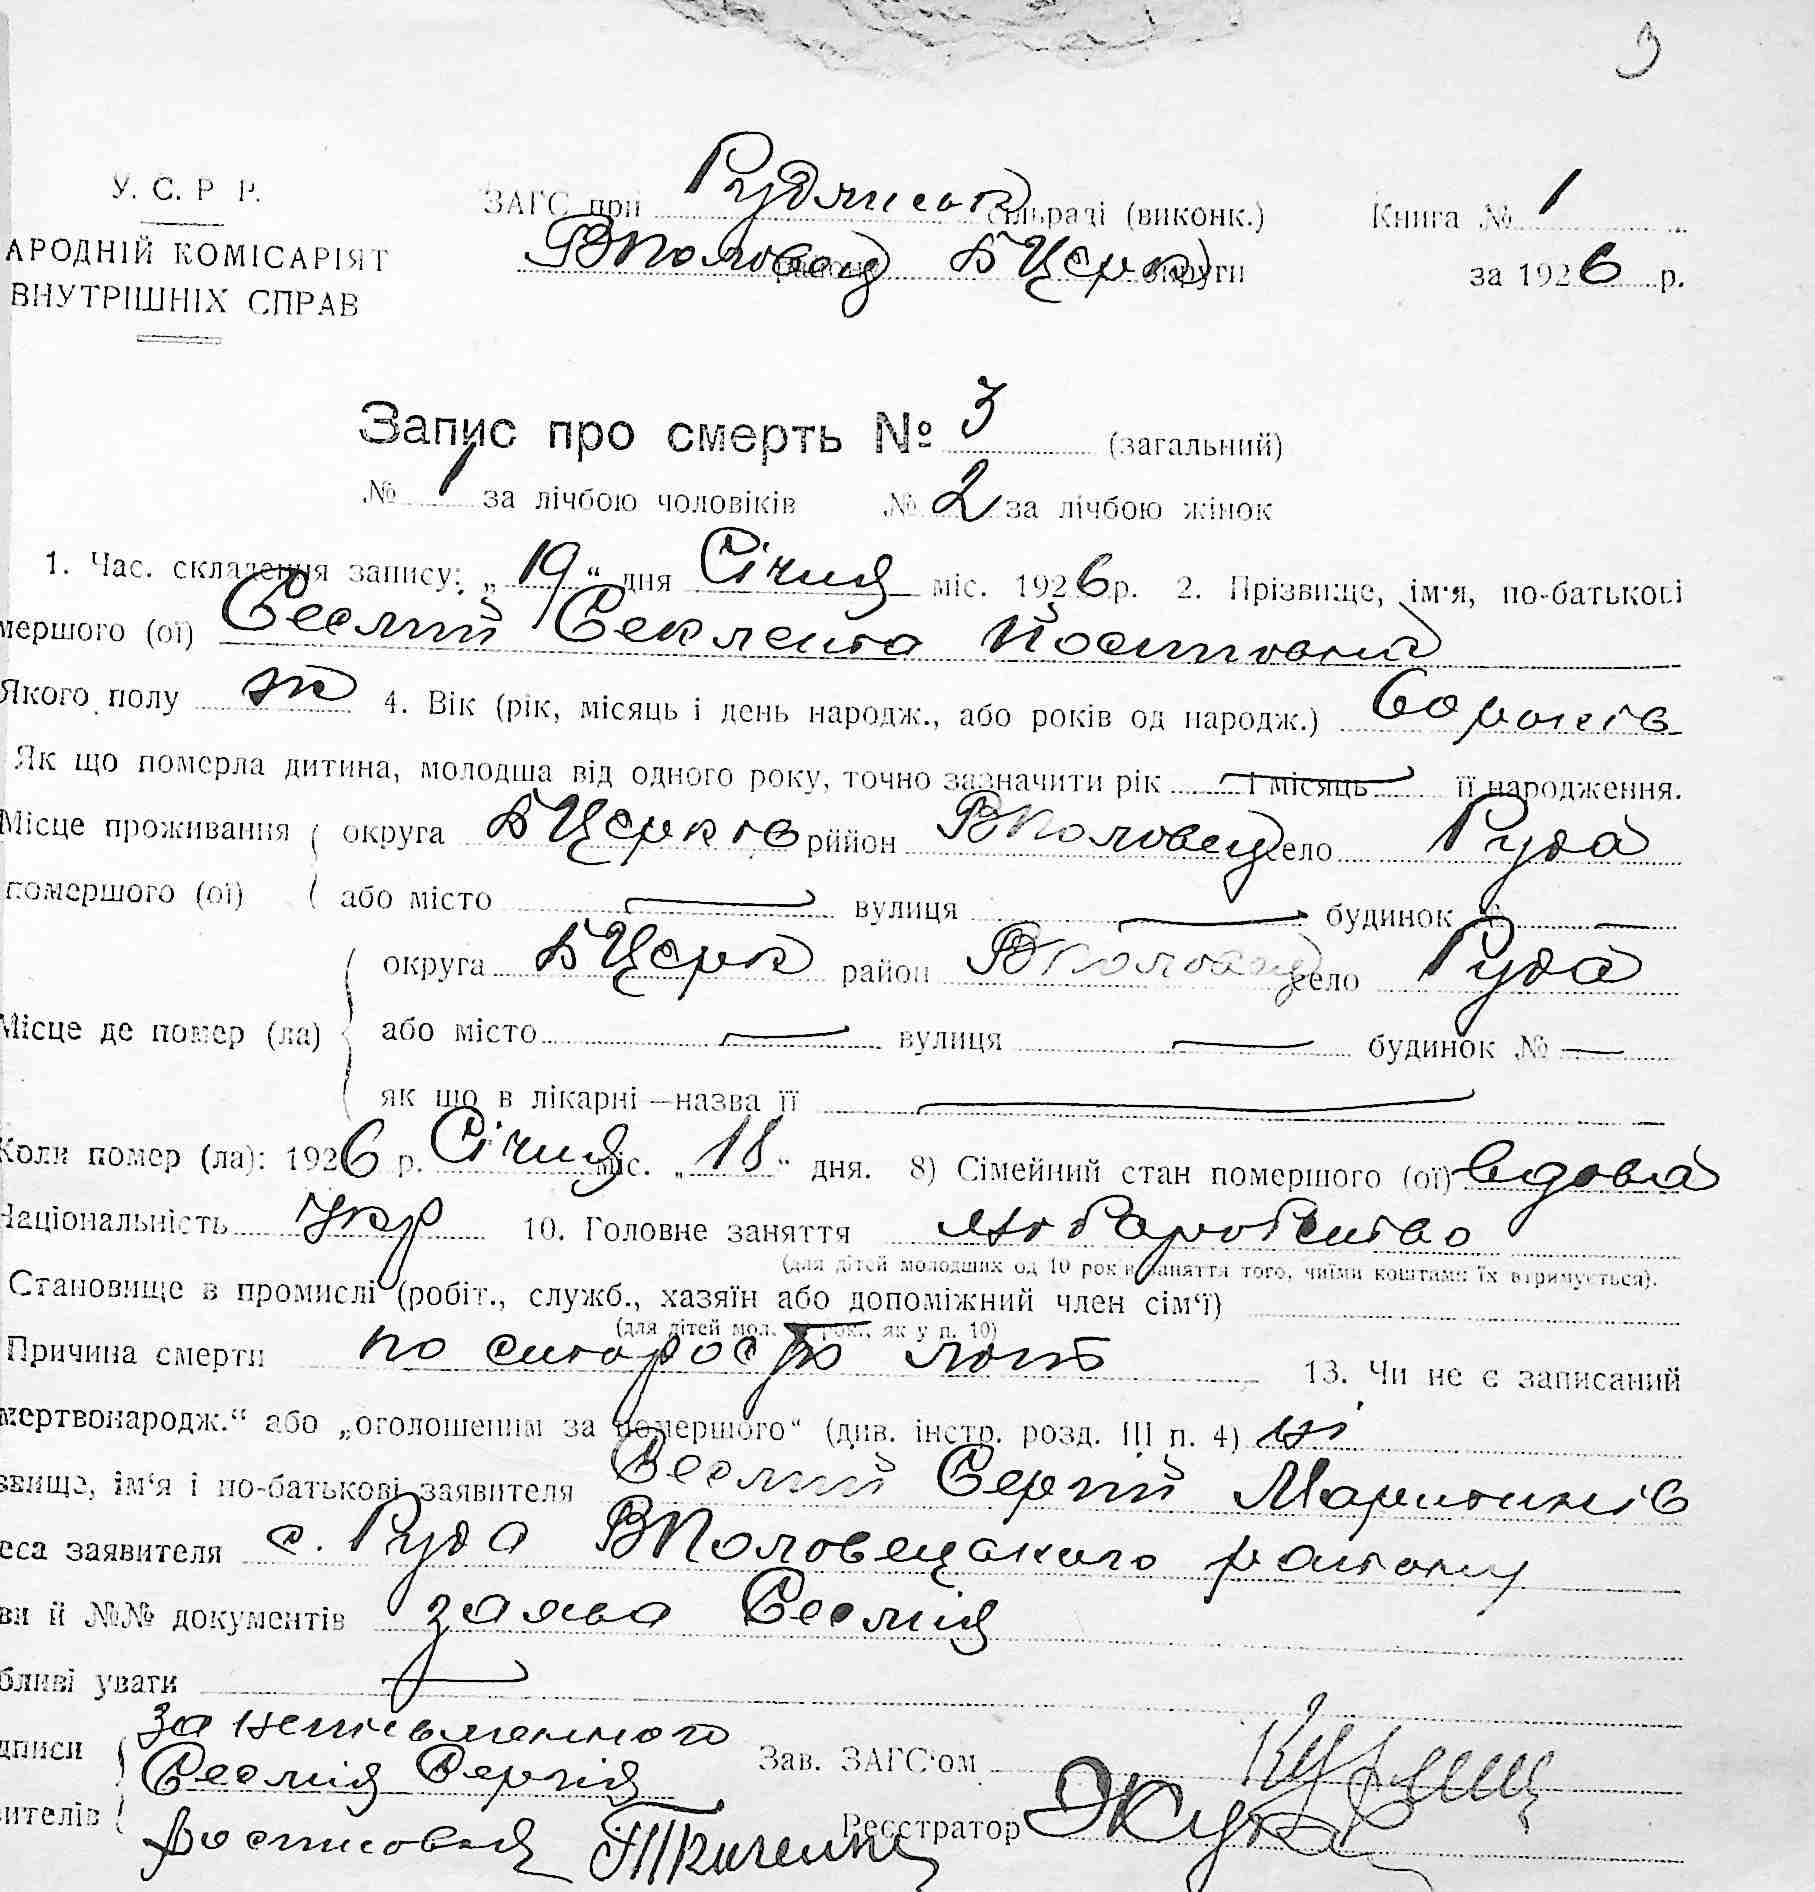 9
У. С. Р Р. ЗАГС при Рудянськ сільраді (виконк.) Книга № 1
АРОДНІЙ КОМІСАРІЯТ ВПоловец району БЦерк округи за 1926 р.
ВНУТРІШНІХ СПРАВ
Запис про смерть № 3 (загальний)
№ 1 за лічбою чоловіків № 2 за лічбою жінок
1. Час. складення запису: „19“ дня Січня міс. 1926 р. 2. Прізвище, ім'я, по-батькові
мершого (ої) Йосиповна
Якого полу ж 4. Вік (рік, місяць і день народж., або років од народж.) 60 років
Як що померла дитина, молодша від одного року, точно зазначити рік і місяць її народження.
Місце проживання округа БЦерків рййон ВПоловец село Руда
помершого (ої) або місто вулиця будинок №
округа БЦерк район ВПоловец село Руда
Місце де помер (ла) або місто вулиця будинок № —
як що в лікарні—назва її
Коли помер (ла): 1926 р. Січня міс. „18“ дня. 8) Сімейний стан помершого (ої) вдова
Національність Укр 10. Головне заняття хліборобство
(для дітей молодших од 10 років заняття того, чиїми коштами їх втримується).
Становище в промислі (робіт., служб., хазяїн або допоміжний член сім'ї)
(для дітей мол. рок., як у п. 10)
Причина смерти по старости літ 13. Чи не є записаний
мертвонародж.“ або „оголошеним за помершого“ (див. інстр. розд. III п. 4) ні
звище, ім'я і по-батькові заявителя Сергій Мартинів
еса заявителя с. Руда ВПоловецького району
ви й №№ документів заява
бливі уваги
дписи за неписьменного Зав. ЗАГС'ом
Сергія
вителів росписовся Ткаченко Реєстратор Жук